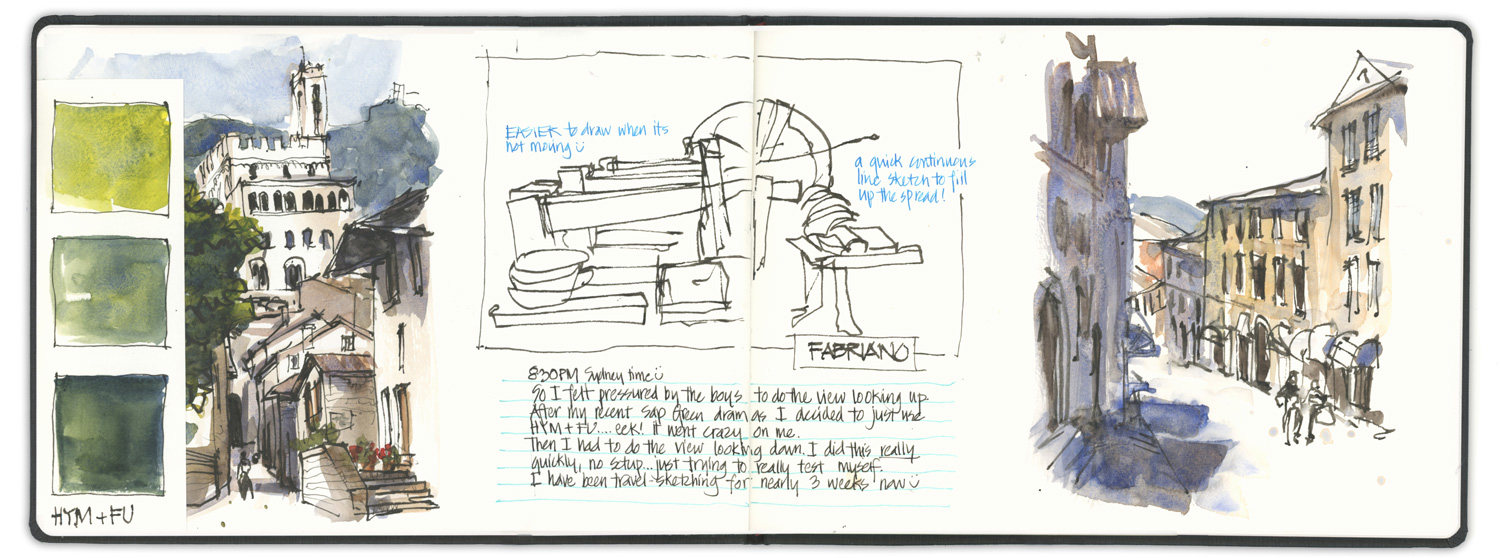 HYM + FU
EASIER to draw when its
not moving
a quick continuous
line sketch to fill
up the spread!
FABRIANO
8:30PM Sydney time
So I felt pressured by the boys to do the view looking up.
After my recent Sap Green dramas I decided to just use
HYM + FU.... eek! it went crazy on me.
Then I had to do the view looking down. I did this really
quickly, no setup... just trying to really test myself.
I have been travel sketching for nearly 3 weeks now